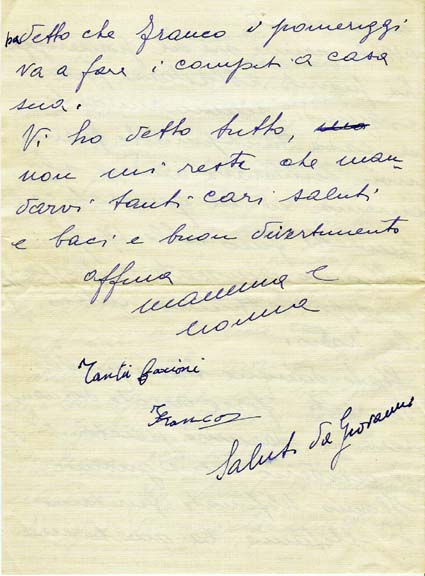 ha detto che Franco i pomeriggi
va a fare i compiti a casa
sua.
Vi ho detto tutto,
non mi resta che man-
darvi tanti cari saluti
e baci e buon divertimento
affma
mamma e
nonna
Tanti bacioni
Franco
Saluti da Giovanna